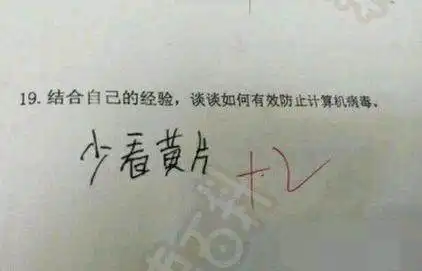 19. 结合自己的经验，谈谈如何有效防止计算机病毒。
少看黄片 +2